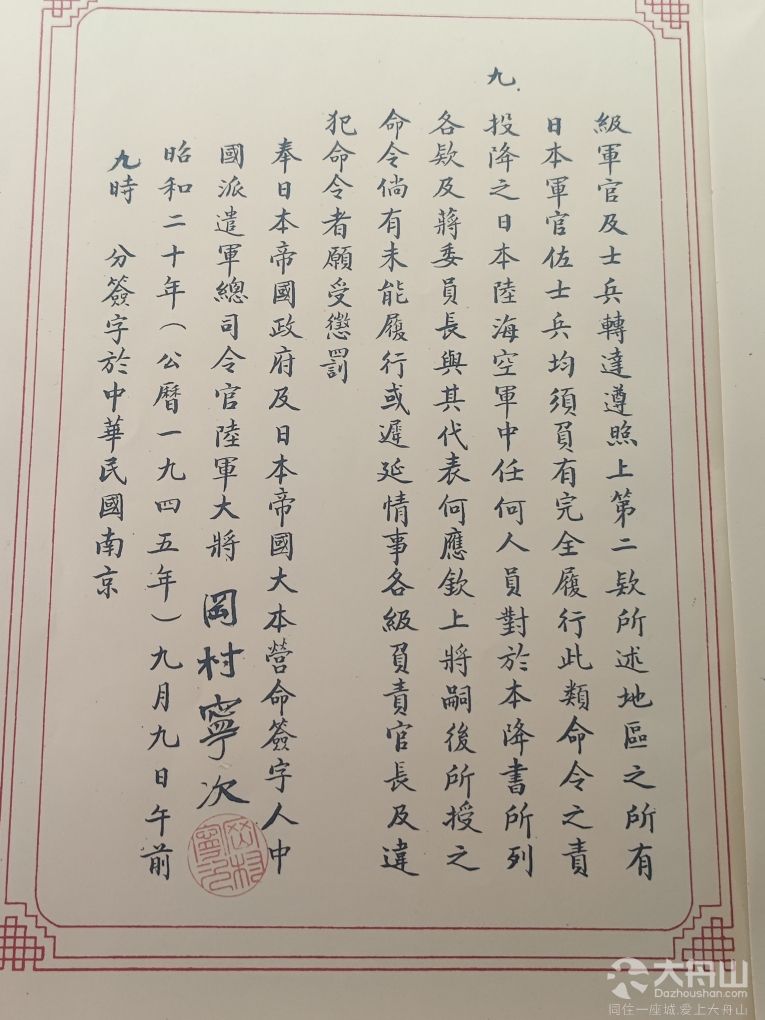 級軍官及士兵轉達遵照上第二欵所述地區之所有
日本軍官佐士兵均須負有完全履行此類命令之責
九.
投降之日本陸海空軍中任何人員對於本降書所列
各欵及蔣委員長與其代表何應欽上將嗣後所授之
命令倘有未能履行或遲延情事各級負責官長及違
犯命令者願受懲罰
奉日本帝國政府及日本帝國大本營命簽字人中
國派遣軍總司令官陸軍大將 岡村寧次
岡村寧次
昭和二十年(公曆一九四五年)九月九日午前
九時 分簽字於中華民國南京
大舟山
Dazhoushan.com
同住一座城,爱上大舟山